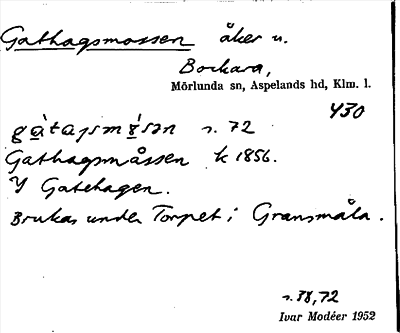 Gathagsmossen åker u.
Bockara,
Mörlunda sn, Aspelands hd, Klm. l.
430
s. 72
Gathagsmåssen k 1856.
Y Gatehagen.
Brukas under Torpet i Gransmåla.
s. 38, 72
Ivar Modéer 1952